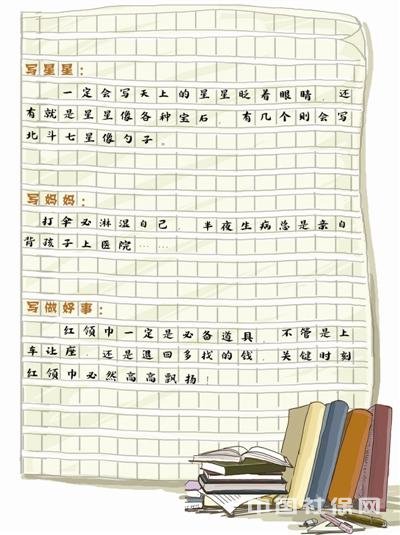 写星星：
一定会写天上的星星眨着眼睛，还
有就是星星像各种宝石，有几个则会写
北斗七星像勺子。
写妈妈：
打伞必淋湿自己，半夜生病总是亲自
背孩子上医院……
写做好事：
红领巾一定是必备道具，不管是上
车让座，还是退回多找的钱，关键时刻
红领巾必然高高飘扬！
中国社保网